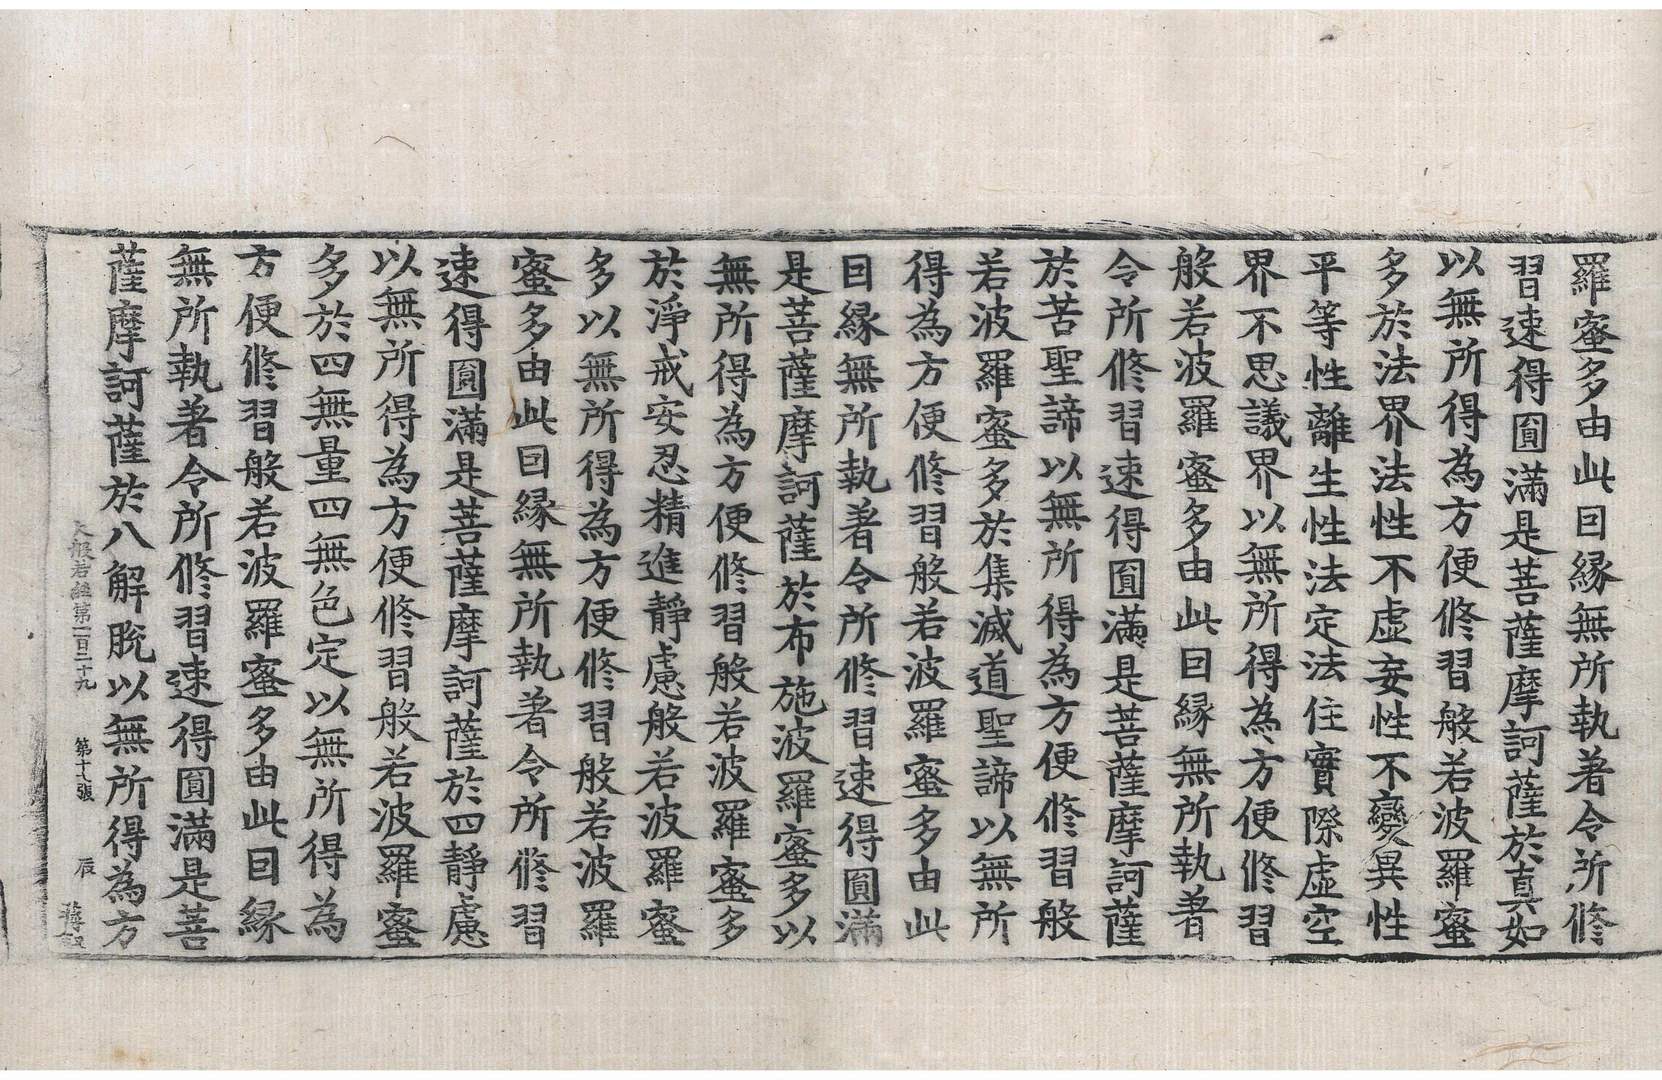 羅蜜多由此因縁無所執著令所修
習速得圓滿是菩薩摩訶薩於真如
以無所得為方便修習般若波羅蜜
多於法界法性不虛妄性不變異性
平等性離生性法定法住實際虛空
界不思議界以無所得為方便修習
般若波羅蜜多由此因縁無所執著
令所修習速得圓滿是菩薩摩訶薩
於苦聖諦以無所得為方便修習般
若波羅蜜多於集滅道聖諦以無所
得為方便修習般若波羅蜜多由此
因縁無所執著令所修習速得圓滿
是菩薩摩訶薩於布施波羅蜜多以
無所得為方便修習般若波羅蜜多
於淨戒安忍精進靜慮般若波羅蜜
多以無所得為方便修習般若波羅
蜜多由此因縁無所執著令所修習
速得圓滿是菩薩摩訶薩於四靜慮
以無所得為方便修習般若波羅蜜
多於四無量四無色定以無所得為
方便修習般若波羅蜜多由此因縁
無所執著令所修習速得圓滿是菩
薩摩訶薩於八解脫以無所得為方
大般若經第一百二十九 第十七張 辰